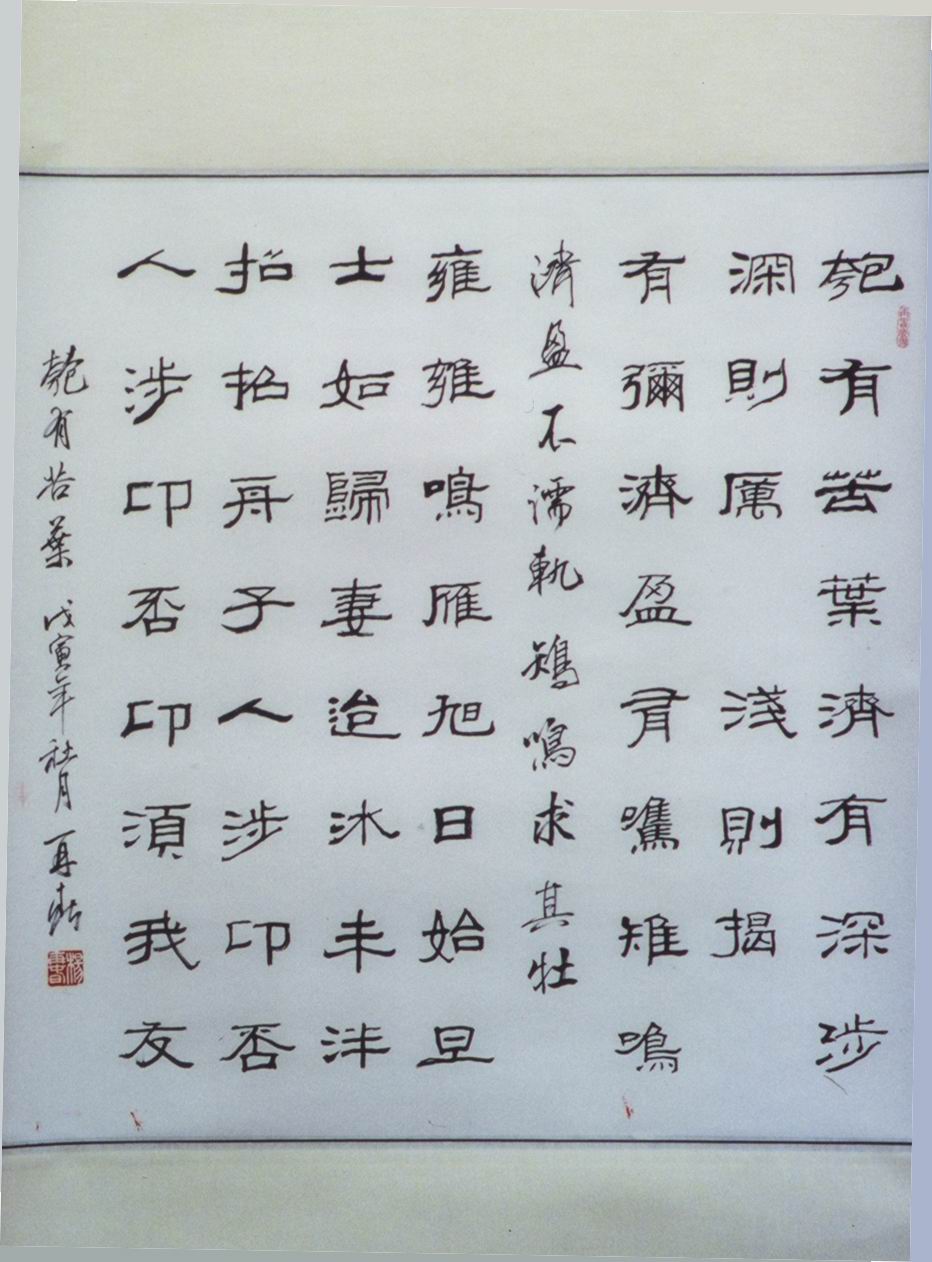 匏有苦葉濟有深涉
深則厲淺則揭
有瀰濟盈有鷕雉鳴
濟盈不濡軌雉鳴求其牡
雍雍鳴雁旭日始旦
士如歸妻迨冰未泮
招招舟子人涉卬否
人涉卬否卬須我友
匏有苦葉 戊寅年社月 再春